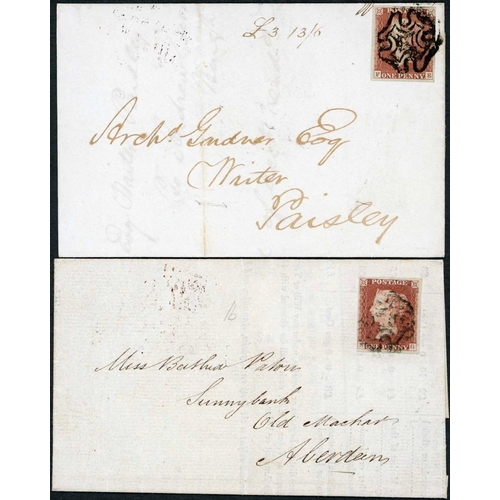 £3 13/6
ONE PENNY
Archd. Gardner Esq
Writer
Paisley
POSTAGE
ONE PENNY
Miss Bethia Paton
Sunnybank
Old Machar
Aberdeen